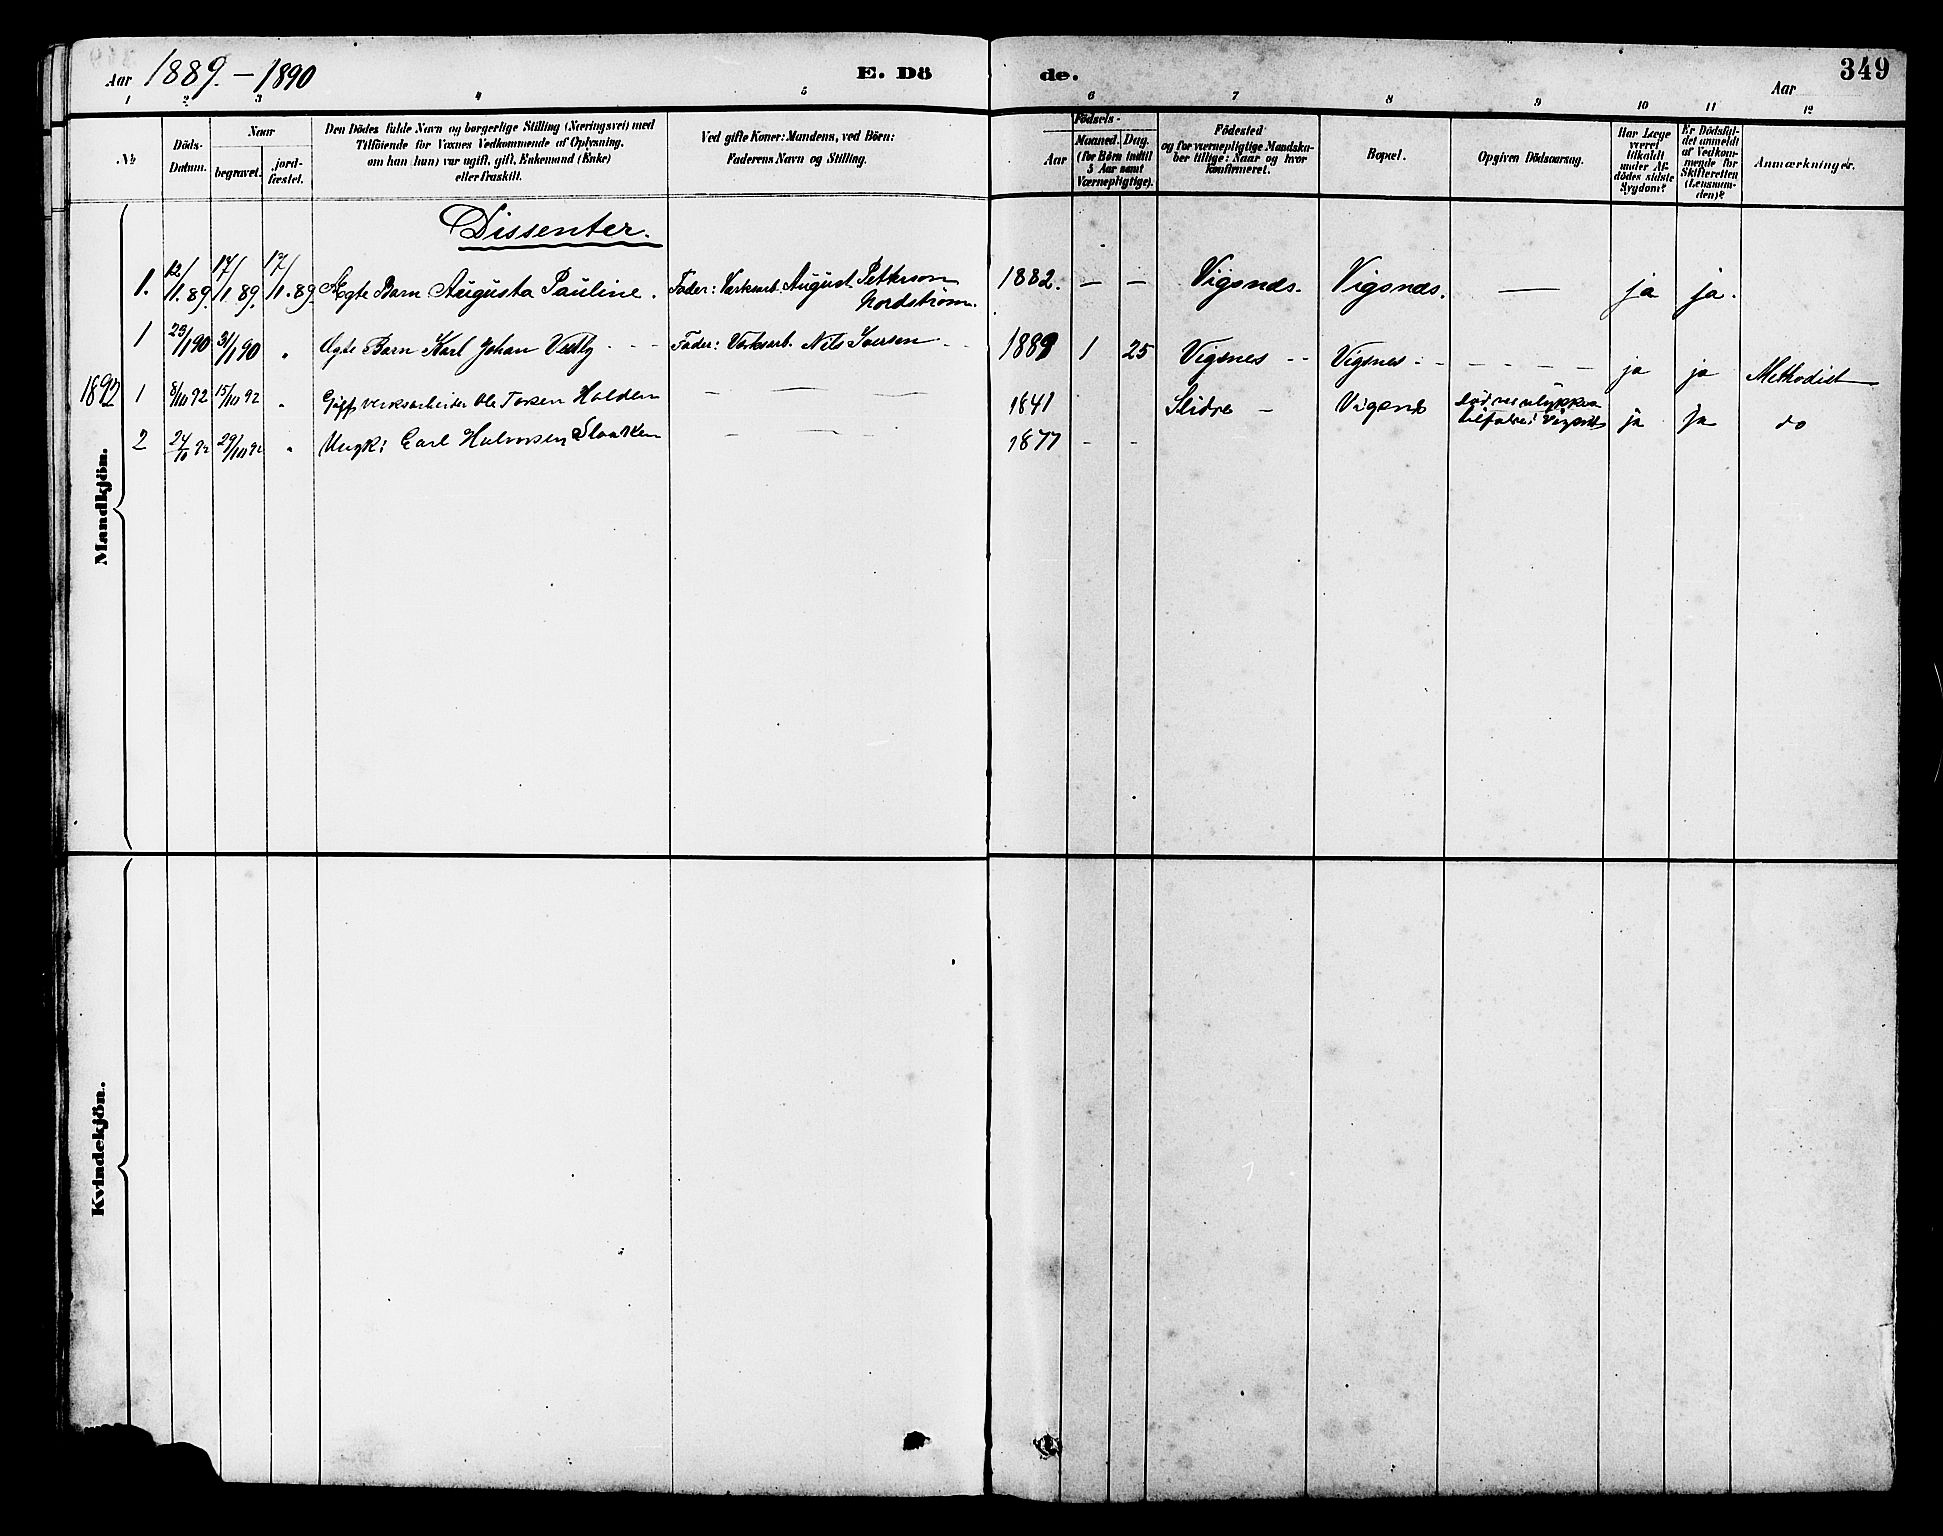 Aar 1889. – 1890
E. Dö
de.
Aar
349
1 2 3 4 5 6 7 8 9 10 11 12
№
Döds-
Datum.
Naar
begravet.
jord-
fæstet.
Den Dödes fulde Navn og borgerlige Stilling (Næringsvei) med
Tilföiende for Voxnes Vedkommende af Oplysning,
om han (hun) var ugift, gift, Enkemand (Enke)
eller fraskilt.
Ved gifte Koner: Mandens, ved Börn:
Faderens Navn og Stilling.
Födsels-
Aar
Maaned.
Dag.
(for Börn indtil
5 Aar samt
Værnepligtige).
Födested
og for værnepligtige Mandska-
ber tillige: Naar og hvor
konfirmeret.
Bopæl.
Opgiven Dödsaarsag.
Har Læge
været
tilkaldt
under Af-
dödes sidste
Sygdom?
Er Dödsfal-
det anmeldt
af Vedkom-
mende for
Skifteretten
(Lensman-
den)?
Anmærkninger.
Dissenter.
1. 12/1.89. 17/1 89. 17/1.89 Ægte Barn Augusta Pauline. Fader: Værksarb. August Petterson Nordstrøm. 1882. — — Vigsnæs. Vigsnæs. — ja ja.
1 23/1 90 31/1 90 " Ægte Barn Karl Johan Vestly - - - Fader: Værksarb. Nils Iversen - - 1889 1 25 Vigsnes - - Vigsnes - - - - - - ja ja Methodist
1892 1 8/10 92 15/10 92 " Gift verksarbeider Ole Halden — — 1841 Slidre - Vigsnes død ved ulykkes
tilfælde i ja ja do
2 24/10 92 29/10 92 " Ungk: Carl - - 1877 - -
Mandkjön.
Kvindekjön.